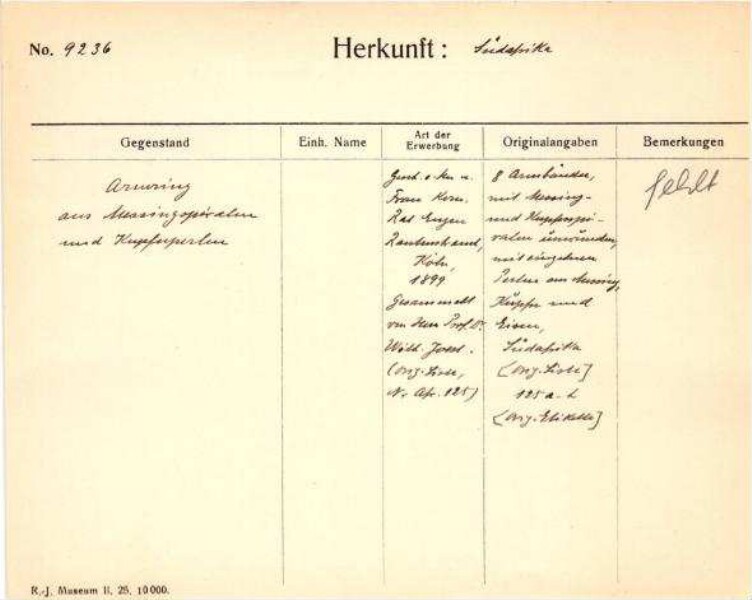 No. 9236
Herkunft: Südafrika
Gegenstand
Einh. Name
Art der
Erwerbung
Originalangaben
Bemerkungen
Armring
aus Messingspiralen
und Kupferperlen
Gesch. v. Herrn u.
Frau Kom.
Rat Eugen
Rautenstrauch,
Köln,
1899
Gesammelt
von Herrn Prof. Dr.
Wilh. Joest.
(Orig. Liste,
Nr. Afr. 125)
8 Armbänder,
mit Messing-
und Kupferspi-
ralen umwunden,
mit einzelnen
Perlen aus Messing,
Kupfer und
Eisen,
Südafrika
[Orig. Liste]
125 a-h
[Orig. Etikette]
fehlt
R.-J. Museum II. 25. 10000.